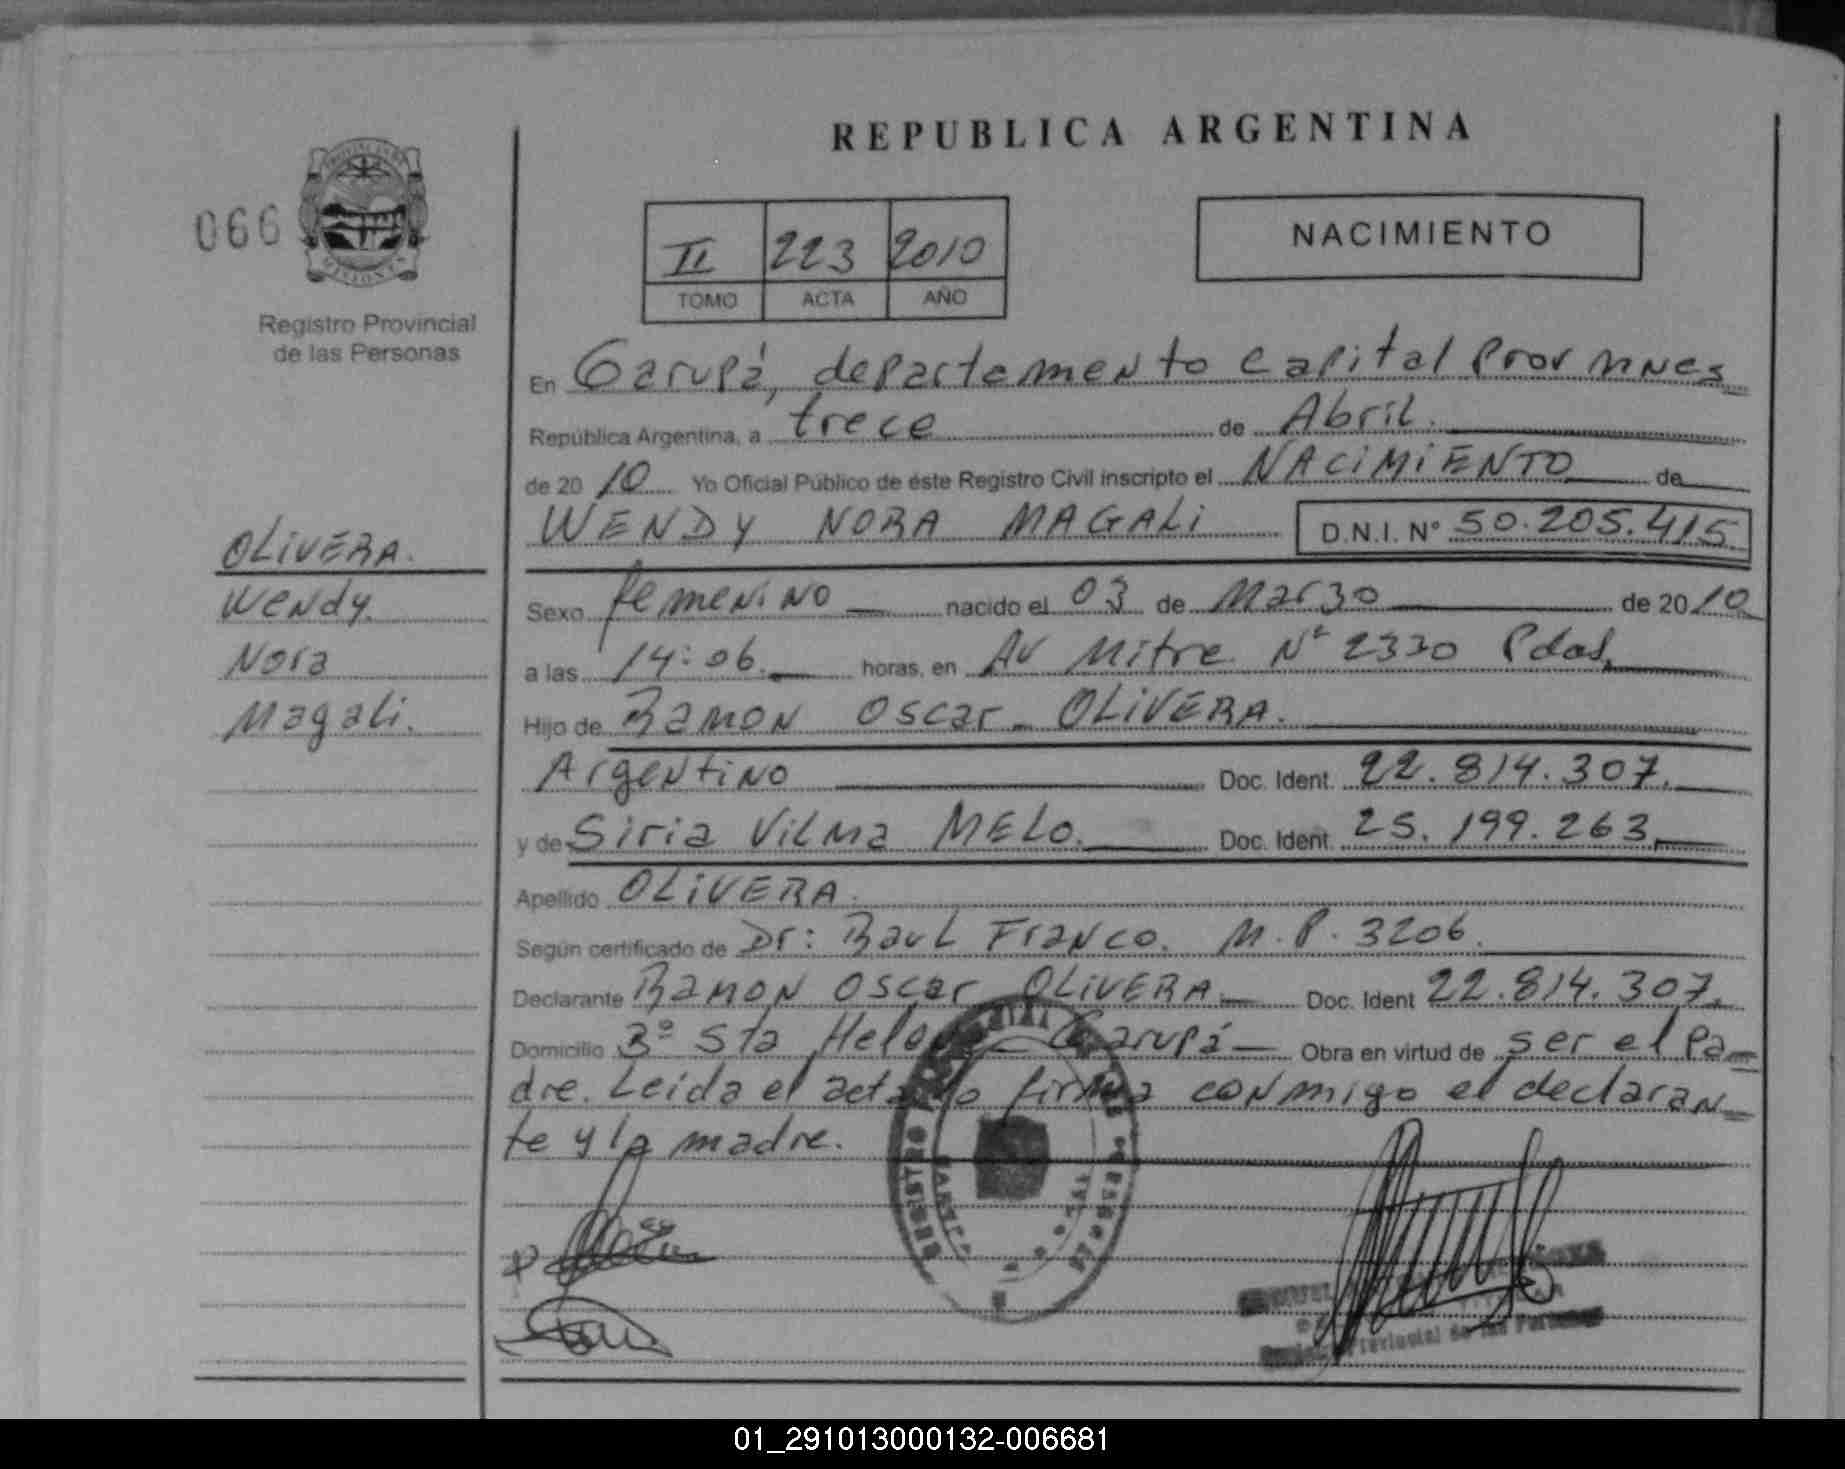 REPUBLICA ARGENTINA
066
PROVINCIA DE
MISIONES
Registro Provincial
de las Personas
II 223 2010
TOMO ACTA AÑO
NACIMIENTO
En Garupá, departamento Capital Prov Mnes
República Argentina, a trece de Abril.
de 2010 Yo Oficial Público de éste Registro Civil inscripto el NACIMIENTO de
WENDY NORA MAGALI D.N.I. N° 50.205.415
OLIVERA.
Wendy.
Nora
Magali.
Sexo femenino nacido el 03 de Marzo de 2010
a las 14:06. horas, en Av Mitre N° 2330 Pdas.
Hijo de Ramon Oscar OLIVERA.
Argentino Doc. Ident. 22.814.307.
y de Siria Vilma MELO. Doc. Ident. 25.199.263
Apellido OLIVERA.
Según certificado de Dr: Raul Franco. M.P. 3206.
Declarante Ramon Oscar OLIVERA Doc. Ident 22.814.307.
Domicilio Bº Sta Garupá Obra en virtud de ser el Pa
dre. Leida el acta firma conmigo el declaran
te y la madre.
Provincial de las Personas
01_291013000132-006681